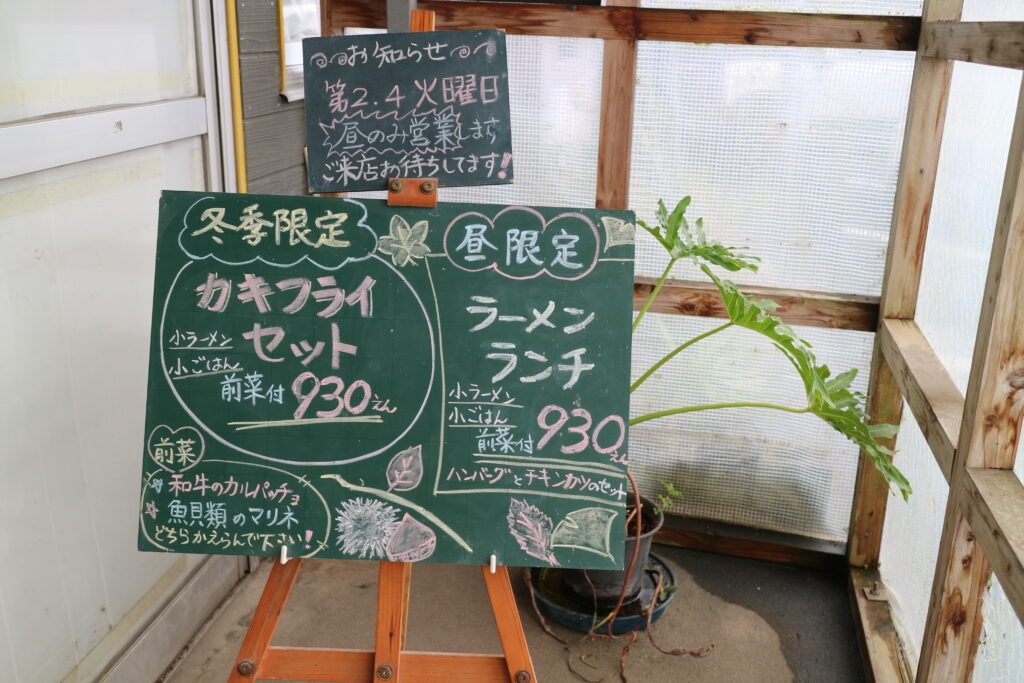 お知らせ
第2.4火曜日
昼のみ営業します
ご来店お待ちしてます!
冬季限定
カキフライ
セット
小ラーメン
小ごはん
前菜付930えん
前菜
和牛のカルパッチョ
魚貝類のマリネ
どちらかえらんで下さい!
昼限定
ラーメン
ランチ
小ラーメン
小ごはん
前菜付930えん
ハンバーグとチキンカツのセット